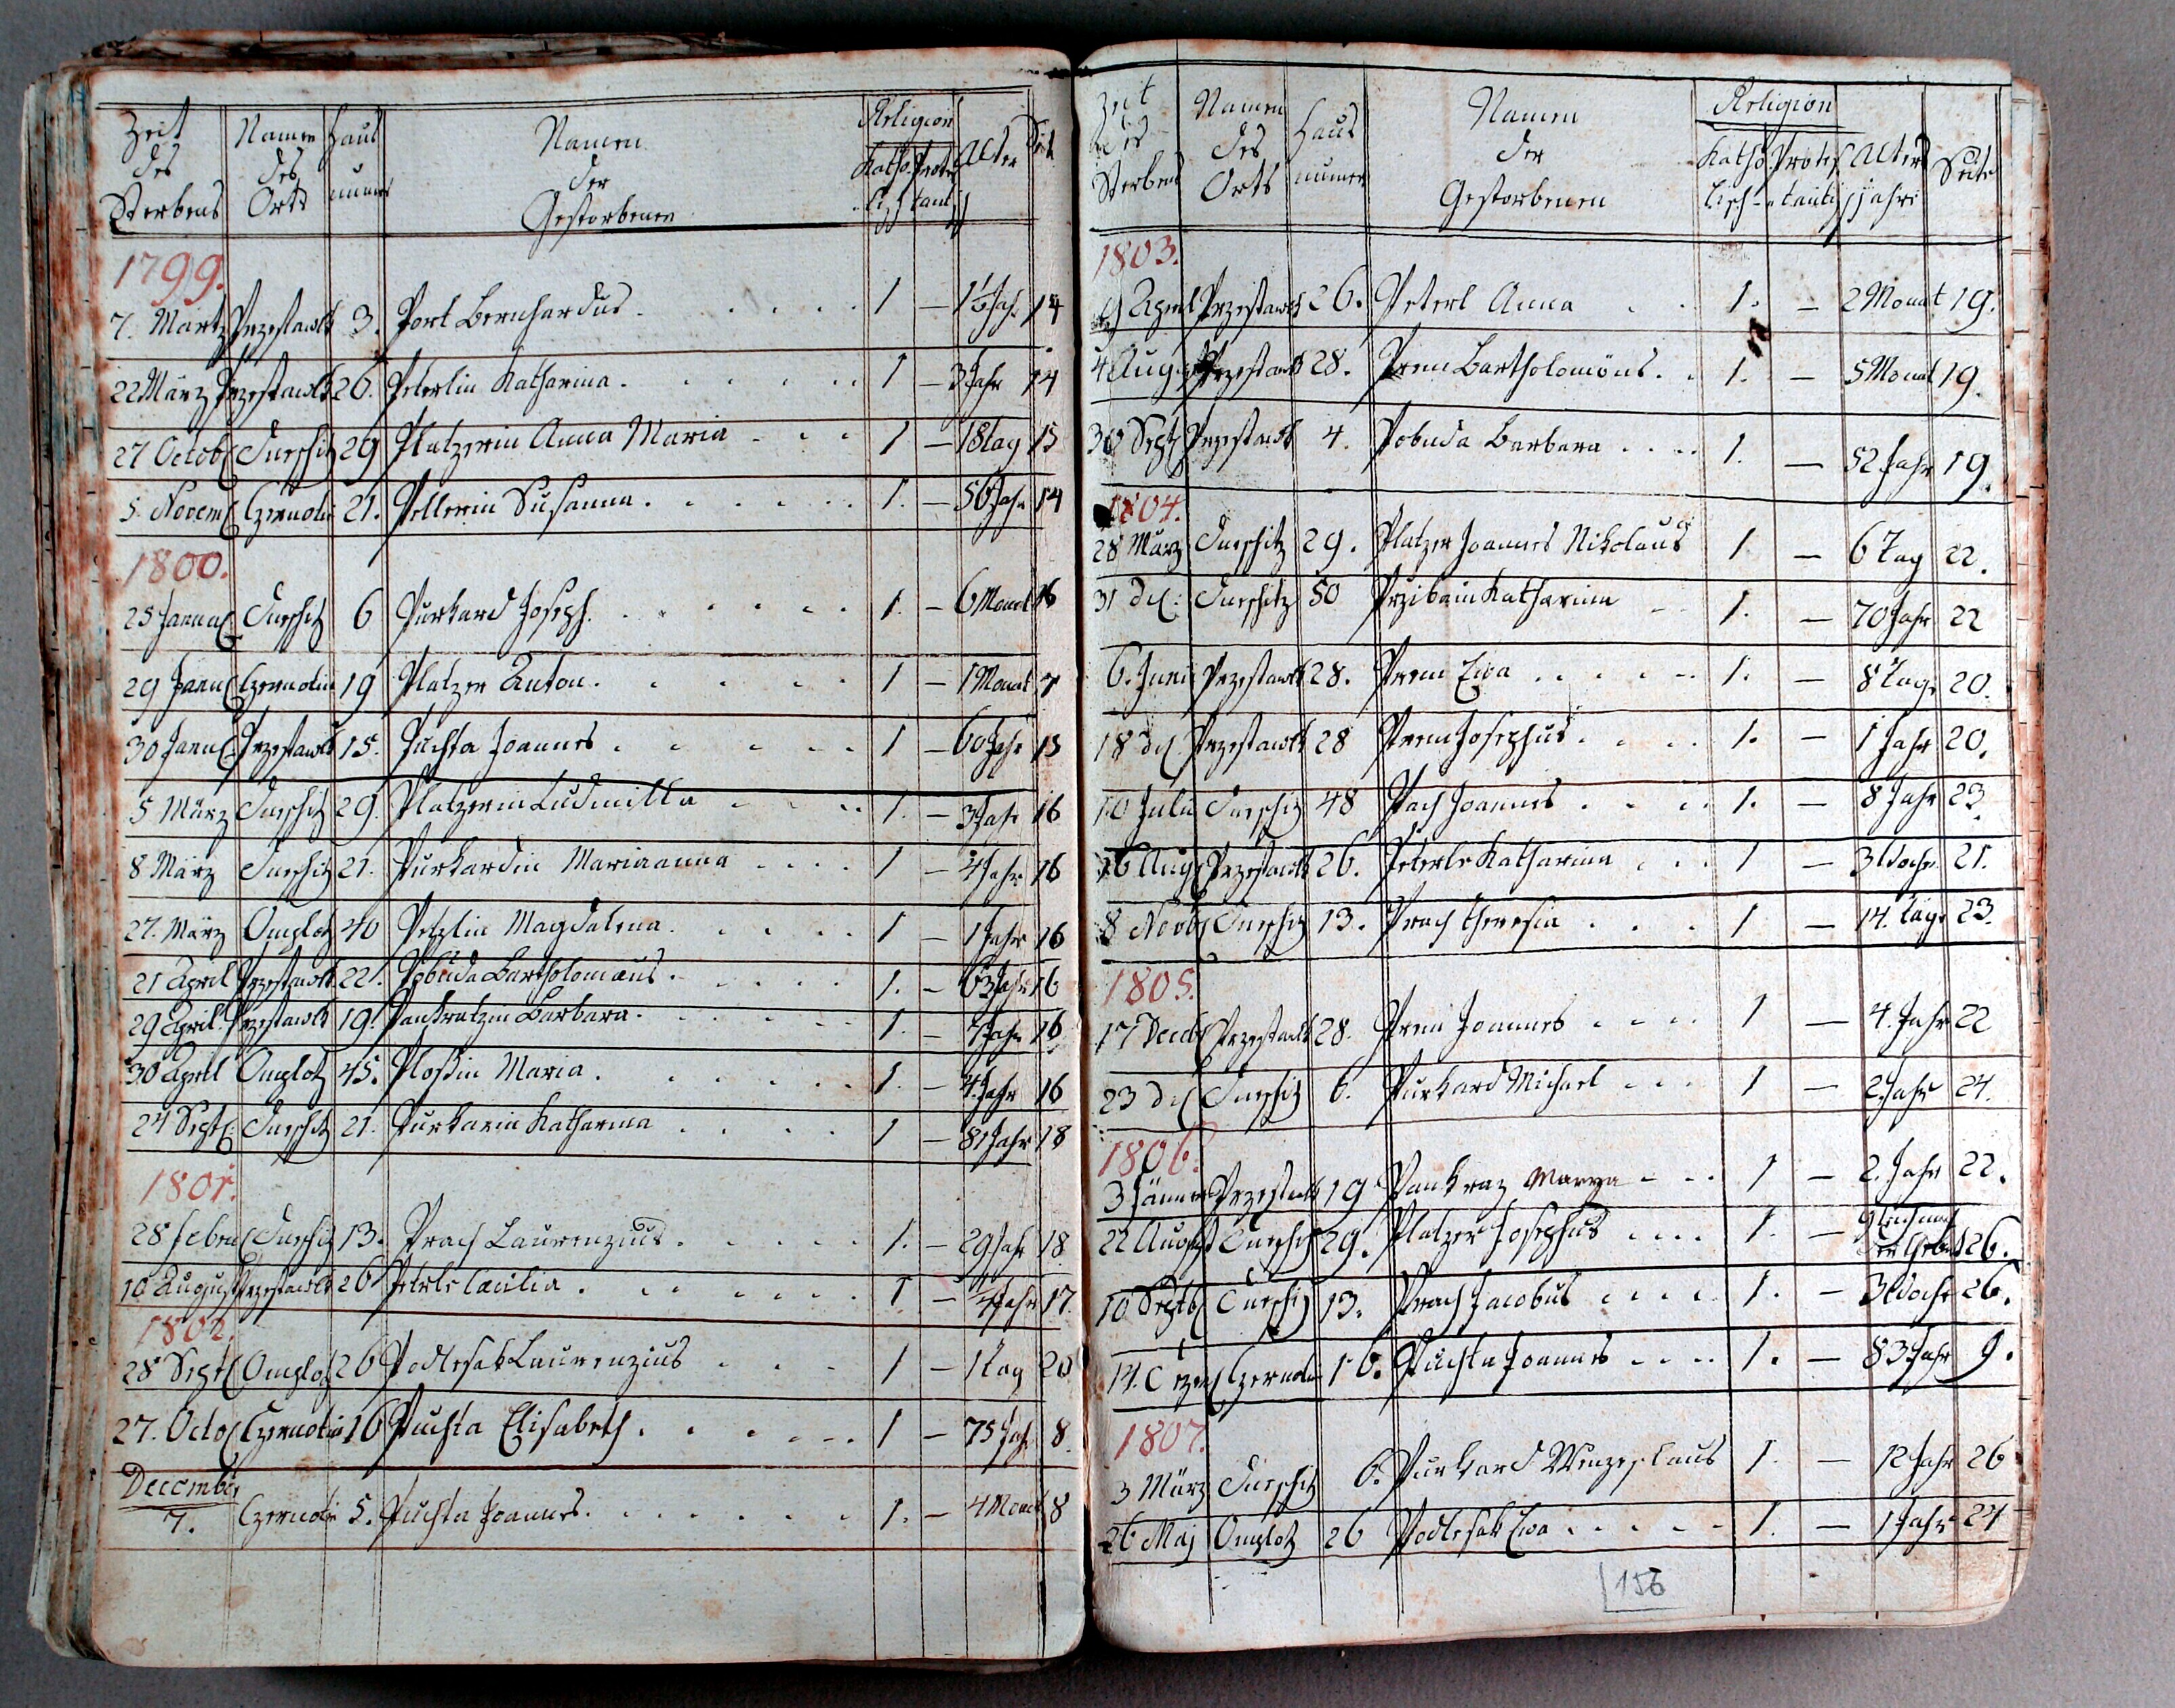 Zeit des Sterbens Namen des Orts Haus numer Namen der Gestorbenen Religion Katholisch Protestant Alter Seite
1799.
7. Martz Przestawlk 3. Port Bernhardus 1 — 14
22 März Przestawlk 26. Peterlin Katharina 1 — 3 Jahr 14
27 Octob Turschitz 29 Platzerin Anna Maria 1 — 18 tag 15
5. Novem Czernotin 21. Pellerin Susanna 1. — 56 Jahr 14
1800.
25 Janua Turschitz 6 Purkard Joseph 1. — 6 Monat 16
29 Janu Czernotin 19 Platzer Anton 1 — 1 Monat 7
30 Janu Przestawlk 15. Puchta Joannes 1 — 60 Jahr 15
5 März Turschitz 29. Platzerin Ludmilla 1. — 3 Jahr 16
8 März Turschitz 21. Purkardin Marianna 1 — 4 Jahr 16
27. März Omzlotz 40 Petzlin Magdalena 1 — 1 Jahr 16
21 April Przestawlk 22. Pobuda Bartholomäus 1. — 63 Jahr 16
29 April Przestawlk 19. Pankratzin Barbara 1. — 7 Jahr 16
30 April Omzlotz 45. Ploßin Maria 1. — 4 Jahr 16
24 Sept. Turschitz 21. Purkarin Katharina 1 — 81 Jahr 18
1801.
28 Febru Turschitz 13. Prach Laurenzius 1. — 29 Jahr 18
10 August Przestawlk 26 Peterle Cäcilia 1 — 17.
1802.
28 Sept Omzlotz 26 Podlesak Laurenzius 1 — 1 tag 20
27. Octo Czernotin 16 Puchta Elisabeth 1 — 75 Jahr 8.
December
7. Czernotin 5. Puchta Joannes 1. — 4 Monat 8
Zeit des Sterbens Namen des Orts Haus numer Namen der Gestorbenen Religion Katholisch Protestantisch Alters jahre Seite
1803.
9 April Przestawlk 26. Peterl Anna 1. — 2 Monat 19.
4 Aug Przestawlk 28. Prem Bartholomöus 1. — 5 Monat 19.
30 Sept Przestawlk 4. Pobuda Barbara 1. — 52 Jahr 19.
1804.
28 März Turschitz 29. Platzer Joannes Nikolaus 1. — 6 Tag 22.
31 det: Turschitz 50 Katharina 1. — 70 Jahr 22
6. Juni Przestawlk 28. Prem Ewa 1. — 8 Tage 20.
18 det Przestawlk 28 Prem Josephus 1. — 1 Jahr 20.
10 Julii Turschitz 48 Pach Joannes 1. — 8 Jahr 23.
26 Aug Przestawlk 26. Peterle Katharina 1 — 3 Woche 21.
8 Novb Turschitz 13. Prach Theresia 1 — 14. tage 23.
1805.
17 Decb Przestawlk 28. Prem Joannes 1 — 4. Jahr 22
23 det Turschitz 6. Purkard Michael 1 — 2 Jahr 24.
1806.
3 Jänner Przestawlk 19 Pankraz Marya 1 — 2. Jahr 22.
22 August Turschitz 29. Platzer Josephus 1. — gleich nach der Geburt 26.
10 Septb Turschitz 13. Prach Jacobus 1. — 3 Woche 26.
14. Czernotin 16. Puchta Joannes 1. — 83 Jahr 9.
1807.
3 März Turschitz 6. Purkard Wenzeslaus 1. — 12 Jahr 26
26 Maj Omzlotz 26 Podlesak Ewa 1. — 1 Jahr 24
156